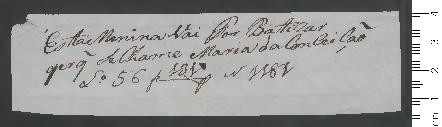 Esta Menina Vai Por Batizar
qerq̃ se Chame Maria da Conceiçaõ
Lº 56 f 181 v Nº 1181